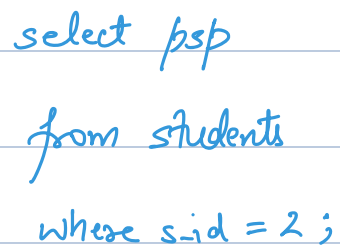 select psp
from students
where s_id = 2 ;